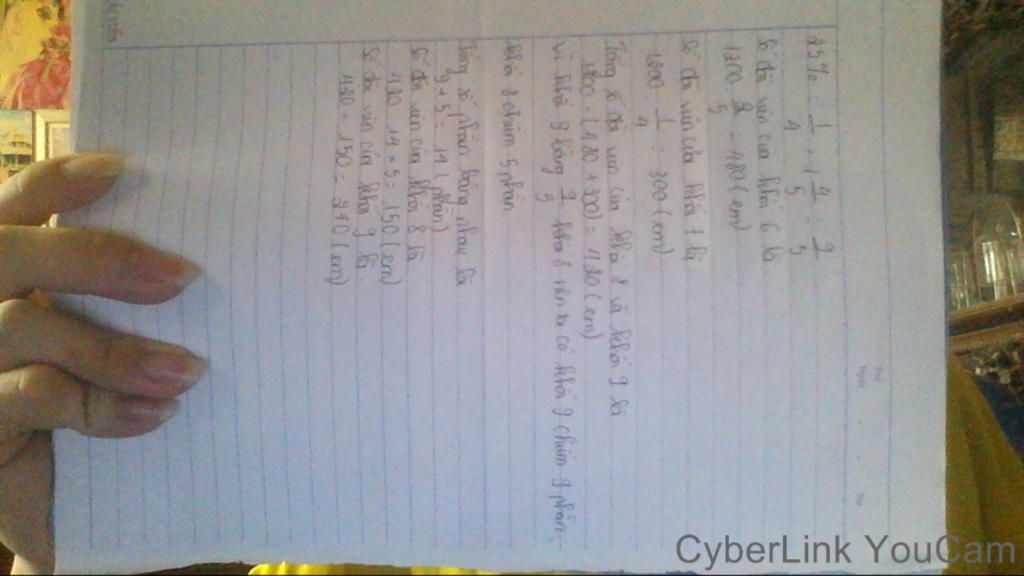 25% = 1/4 , 1 4/5 = 9/5
Số đội viên của khối 6 là
1200 . 2/5 = 480 (em)
Số đội viên của khối 7 là
1200 . 1/4 = 300 (em)
Tổng số đội viên của khối 8 và khối 9 là
1200 - (480 + 300) = 420 (em)
Vì khối 9 bằng 9/5 khối 8 nên ta có khối 9 chiếm 9 phần,
khối 8 chiếm 5 phần
Tổng số phần bằng nhau là
9 + 5 = 14 (phần)
Số đội viên của khối 8 là
420 : 14 . 5 = 150 (em)
Số đội viên của khối 9 là
420 - 150 = 270 (em)
CyberLink YouCam